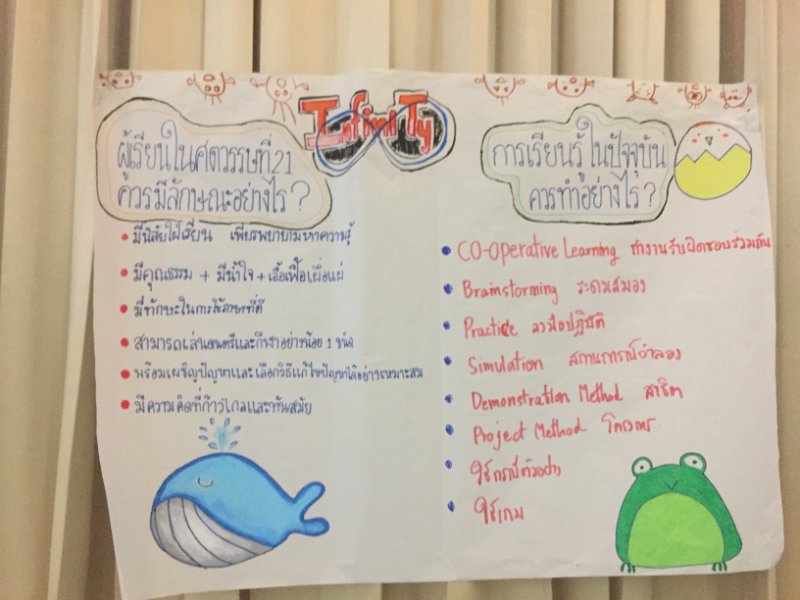 Infinity
ผู้เรียนในศตวรรษที่ 21
ควรมีลักษณะอย่างไร?
• มีนิสัยใฝ่เรียน เพียรพยายามหาความรู้
• มีคุณธรรม + มีน้ำใจ + เอื้อเฟื้อเผื่อแผ่
• มีทักษะในการใช้ภาษาที่ดี
• สามารถเล่นดนตรีและกีฬาอย่างน้อย 1 ชนิด
• พร้อมเผชิญปัญหาและเลือกวิธีแก้ไขปัญหาได้อย่างเหมาะสม
• มีความคิดที่ก้าวไกลและทันสมัย
การเรียนรู้ในปัจจุบัน
ควรทำอย่างไร?
• CO-operative Learning ทำงานรับผิดชอบร่วมกัน
• Brainstorming ระดมสมอง
• Practice ลงมือปฏิบัติ
• Simulation สถานการณ์จำลอง
• Demonstration Method สาธิต
• Project Method โครงการ
• ใช้กรณีตัวอย่าง
• ใช้เกม